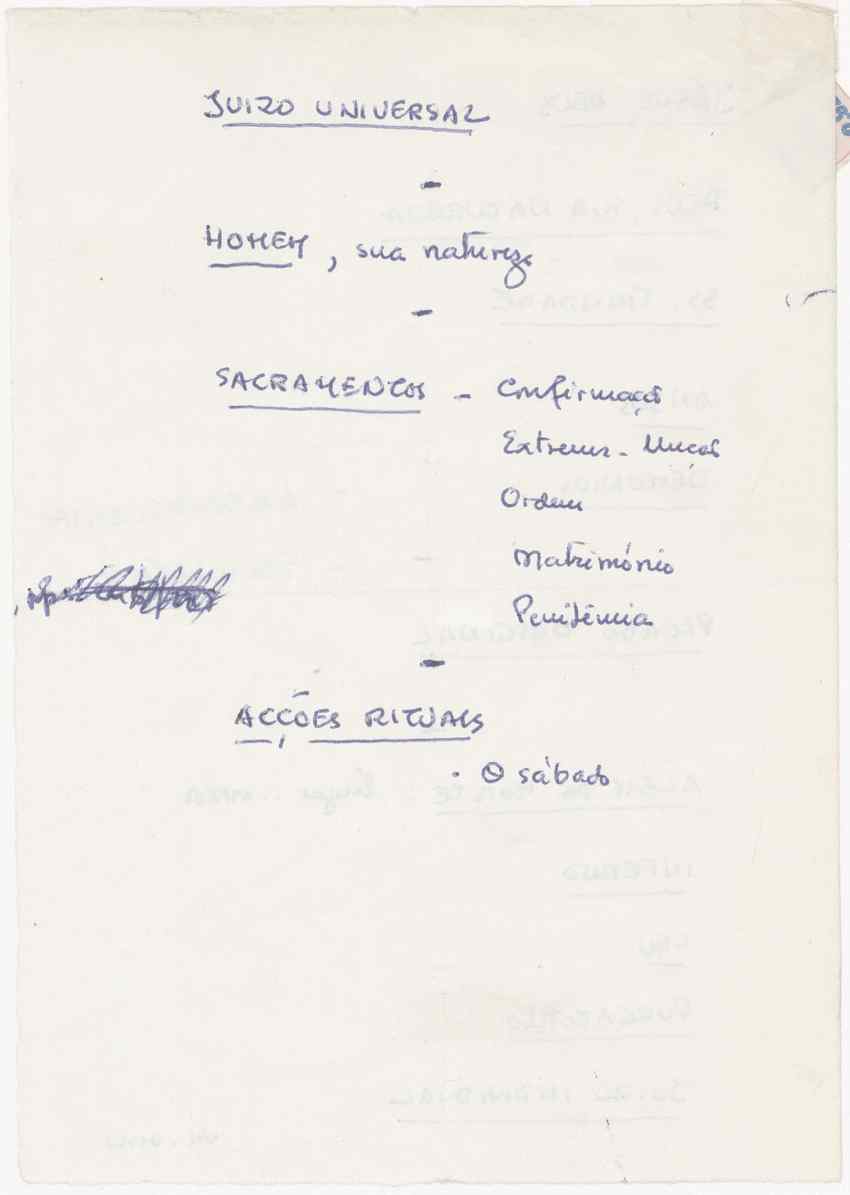 JUIZO UNIVERSAL
-
HOMEM, sua natureza
-
SACRAMENTOS - Confirmação
Extrema-Unção
Ordem
Matrimónio
Penitência
-
ACÇÕES RITUAIS
. O sábado